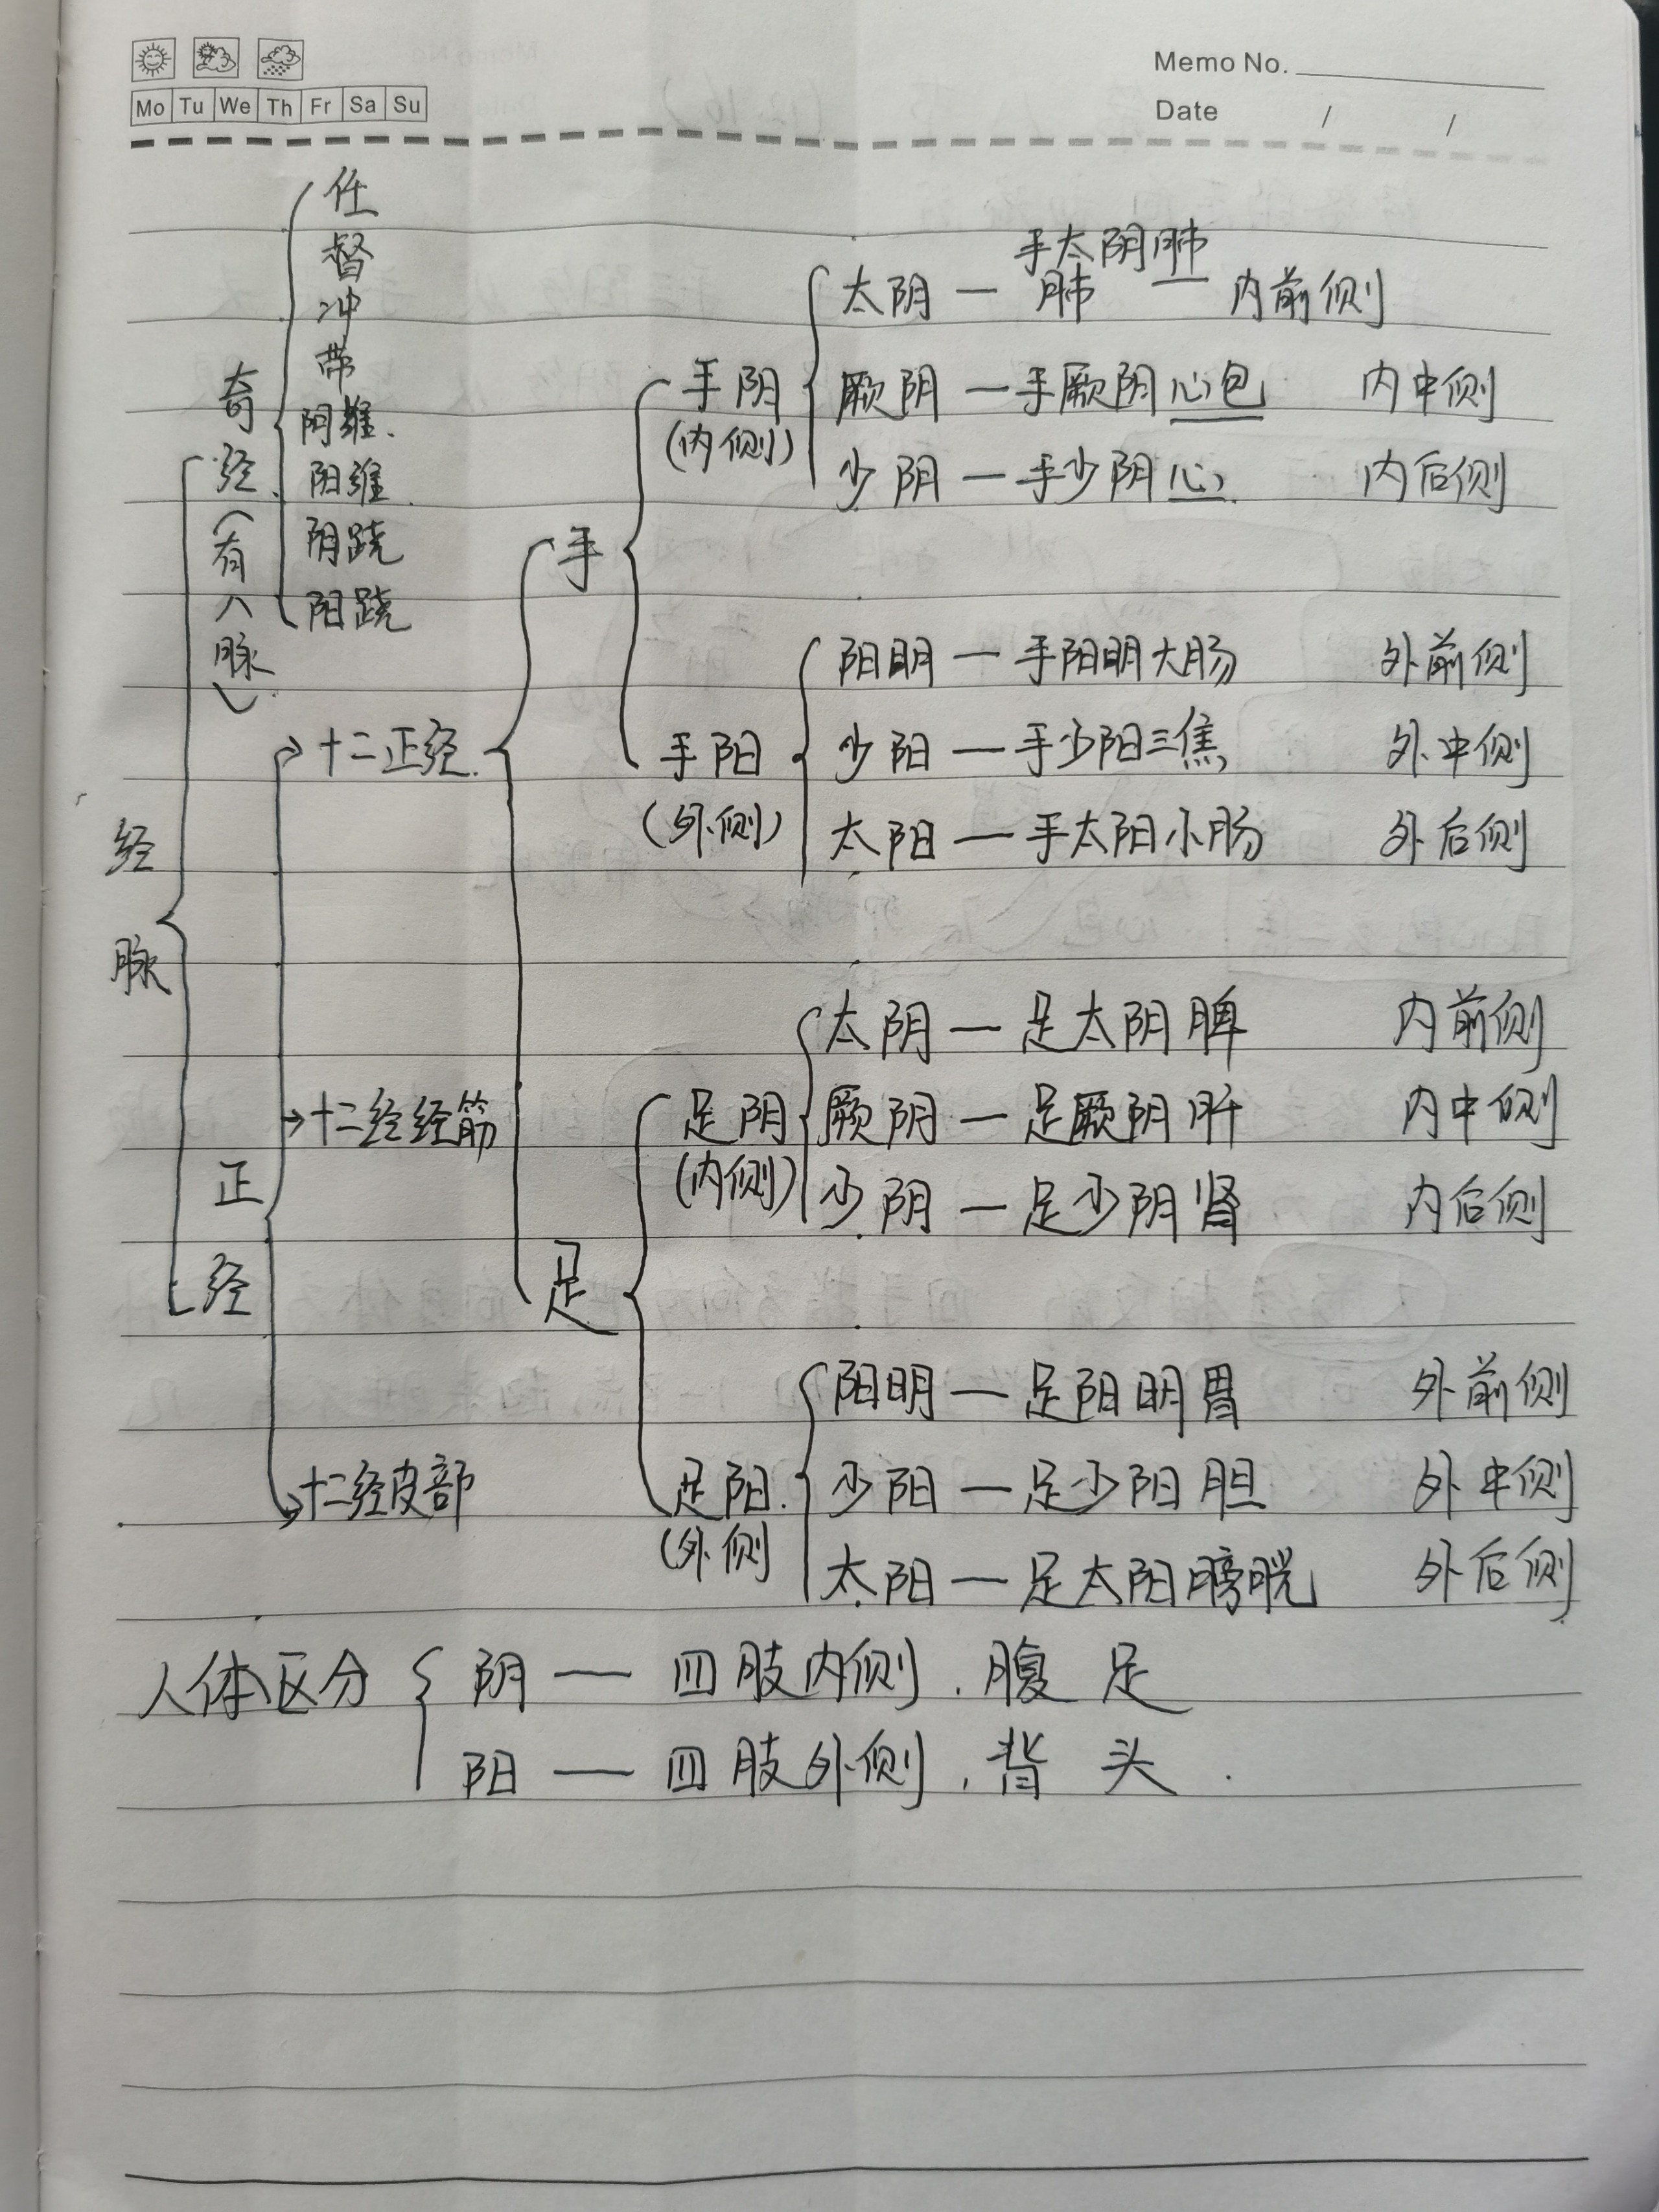 Memo No.
Mo Tu We Th Fr Sa Su
Date / /
经脉
奇经(有八脉)
任
督
冲
带
阴维.
阳维.
阴跷
阳跷
正经
十二正经.
手
手阴
(内侧)
手太阴肺
太阴 — 肺 — 内前侧
厥阴 — 手厥阴心包 内中侧
少阴 — 手少阴心. 内后侧
手阳
(外侧)
阳明 — 手阳明大肠 外前侧
少阳 — 手少阳三焦 外中侧
太阳 — 手太阳小肠 外后侧
足
足阴
(内侧)
太阴 — 足太阴脾 内前侧
厥阴 — 足厥阴肝 内中侧
少阴 — 足少阴肾 内后侧
足阳.
(外侧
阳明 — 足阳明胃 外前侧
少阳 — 足少阳胆 外中侧
太阳 — 足太阳膀胱 外后侧
十二经经筋
十二经皮部
人体区分
阴 — 四肢内侧、腹 足
阳 — 四肢外侧、背 头.